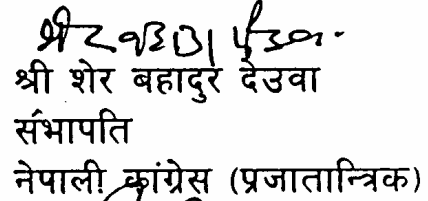 श्री शेर बहादुर देउवा
सभापति
नेपाली कांग्रेस (प्रजातान्त्रिक)